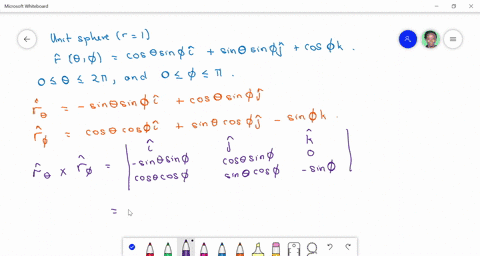 Microsoft Whiteboard
Unit sphere (r = 1)
r̂(θ,ϕ) = cosθsinϕî + sinθsinϕĵ + cosϕk.
0 ≤ θ ≤ 2π, and 0 ≤ ϕ ≤ π.
r̂θ = -sinθsinϕî + cosθsinϕĵ
r̂ϕ = cosθcosϕî + sinθcosϕĵ - sinϕk.
î ĵ k̂
r̂θ × r̂ϕ = | -sinθsinϕ cosθsinϕ 0 |
cosθcosϕ sinθcosϕ -sinϕ
=